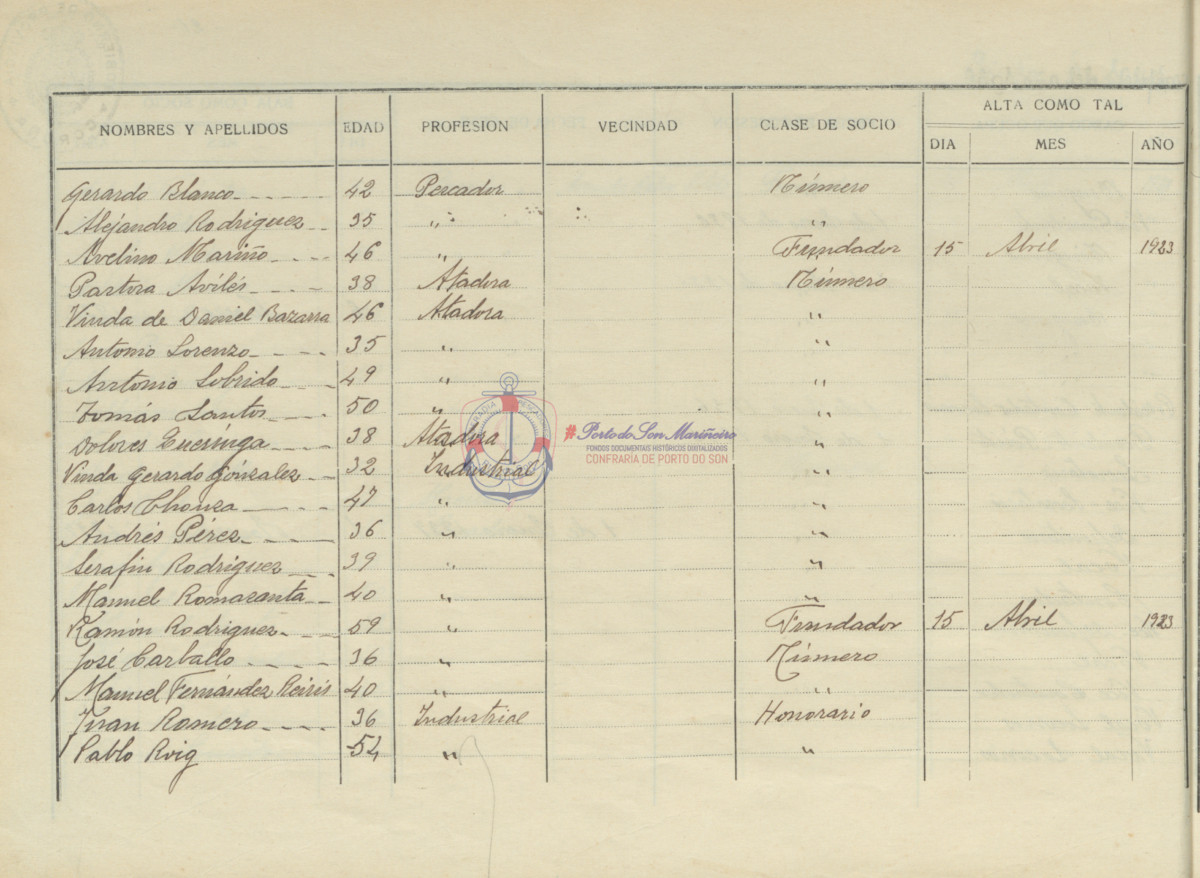 ALTA COMO TAL
NOMBRES Y APELLIDOS EDAD PROFESION VECINDAD CLASE DE SOCIO DIA MES AÑO
Gerardo Blanco 42 Pescador Número
Alejandro Rodriguez 35 " "
Avelino Mariño 46 " Fundador 15 Abril 1923
Pastora Avilés 38 Atadora Número
Viuda de Daniel Bazarra 46 Atadora "
Antonio Lorenzo 35 " "
Antonio Lobrido 49 " "
Tomás Santos 50 " "
Dolores 38 Atadora "
Viuda Gerardo Gónzalez 32 Industrial "
Carlos Chouza 47 " "
Andrés Pérez 36 " "
Serafin Rodriguez 39 " "
Manuel Romasanta 40 " "
Ramón Rodriguez 59 " Fundador 15 Abril 1923
José Carballo 36 " Número
Manuel Fernández Reirís 40 " "
Juan Romero 36 Industrial Honorario
Pablo Roig 54 " "
#Porto do Son Mariñeiro
FONDOS DOCUMENTAIS HISTÓRICOS DIXITALIZADOS
CONFRARÍA DE PORTO DO SON